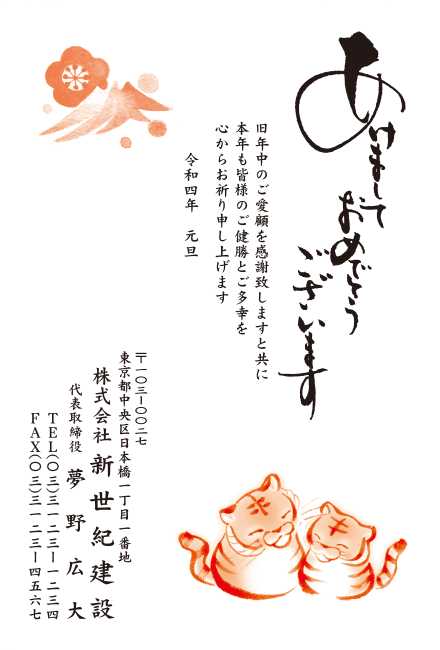 あけまして
おめでとう
ございます
旧年中のご愛顧を感謝致しますと共に
本年も皆様のご健勝とご多幸を
心からお祈り申し上げます
令和四年　元旦
〒一〇三-〇〇二七
東京都中央区日本橋一丁目一番地
株式会社 新世紀建設
代表取締役 夢野広大
TEL(〇三)三一二三-一二三四
FAX(〇三)三一二三-四五六七